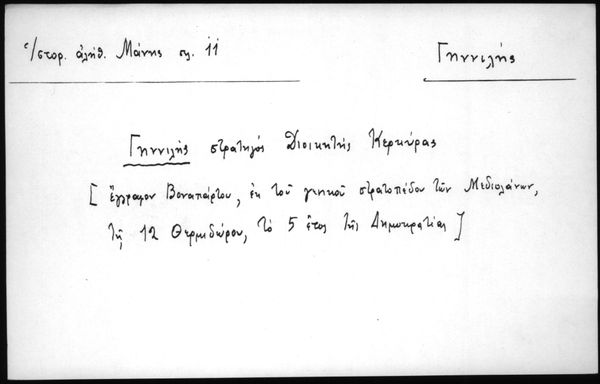 Ἱστορ. ἀλήθ. Μάνης σελ. 11
Γηννιλῆς
Γηννιλῆς στρατηγός Διοικητής Κερκύρας
[ ἔγγραφον Βοναπάρτου, ἐκ τοῦ γενικοῦ στρατοπέδου τῶν Μεδιολάνων,
τῇ 12 Θερμιδώρου, τό 5 ἔτος τῆς Δημοκρατίας ]